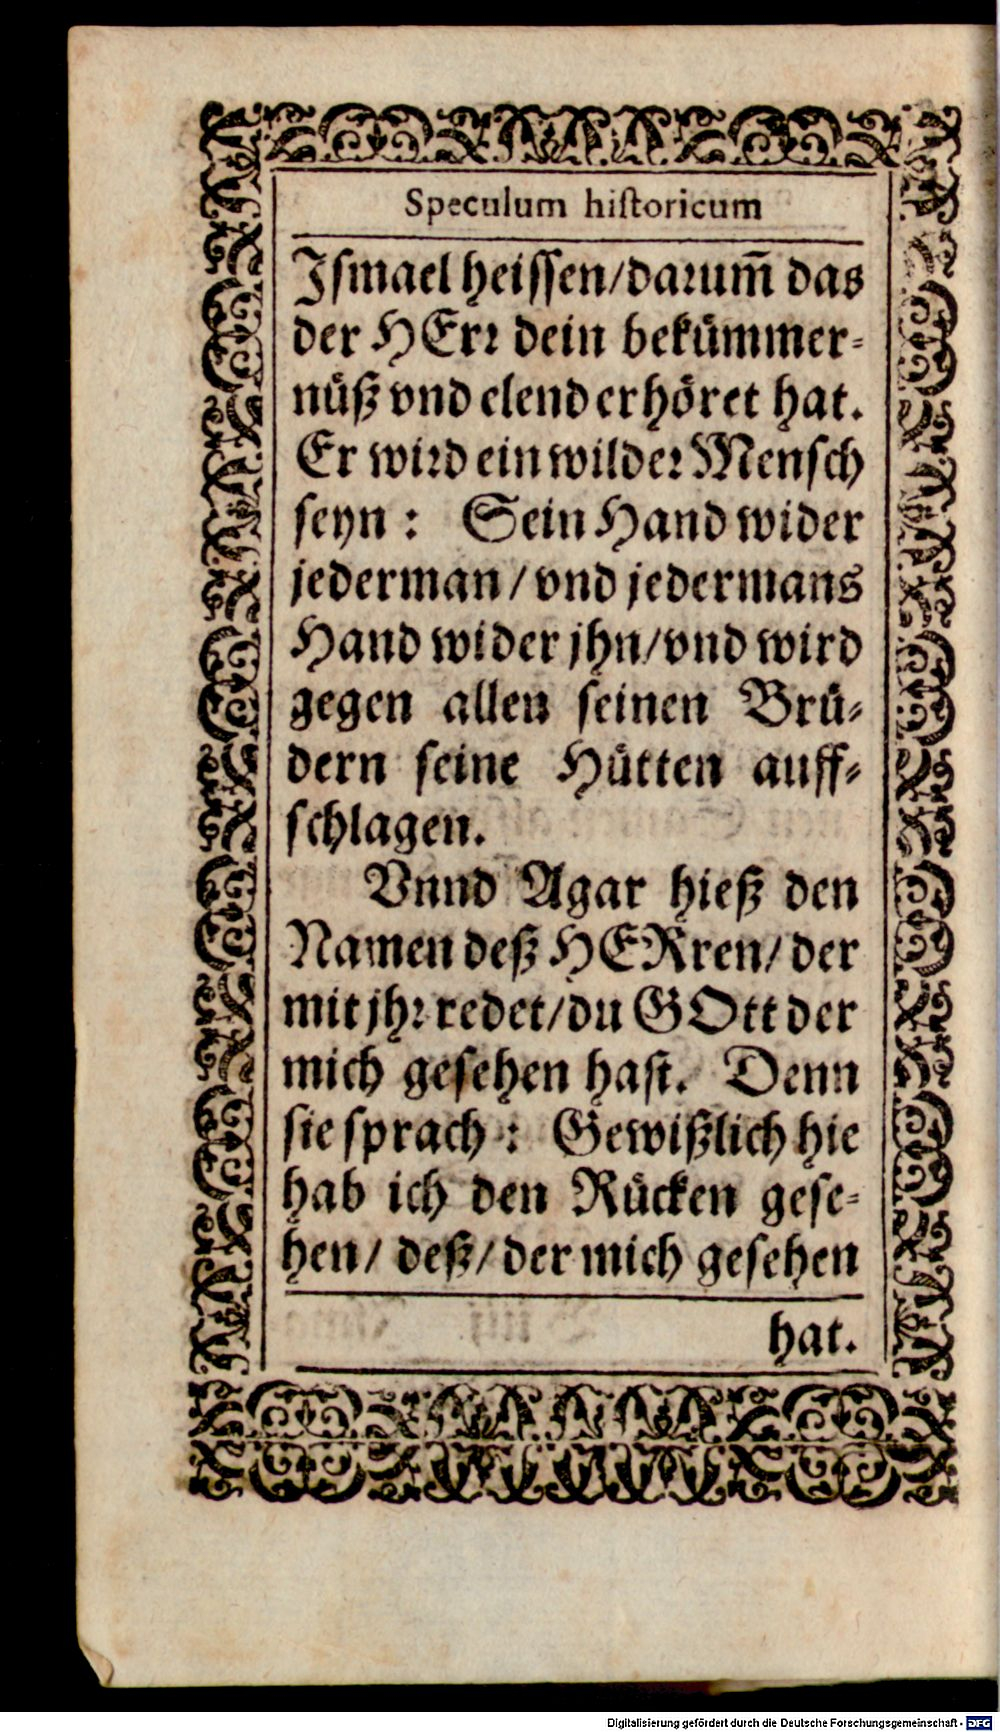 Speculum historicum
Ismael heissen/darum̄ das
der HErr dein bekümmer-
nüß vnd elend erhöret hat.
Er wird ein wilder Mensch
seyn: Sein Hand wider
jederman/vnd jedermans
Hand wider jhn/vnd wird
gegen allen seinen Brü-
dern seine Hütten auff-
schlagen.
Vnnd Agar hieß den
Namen deß HERren/der
mit jhr redet/du GOtt der
mich gesehen hast. Denn
sie sprach: Gewißlich hie
hab ich den Rücken gese-
hen/ deß/der mich gesehen
hat.
Digitalisierung gefördert durch die Deutsche Forschungsgemeinschaft - DFG